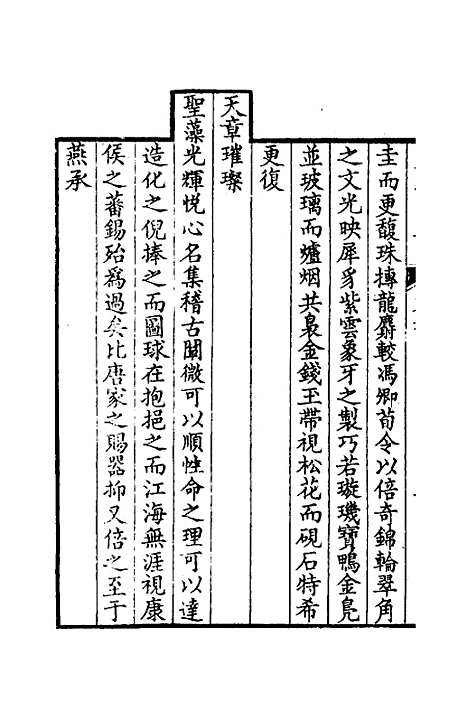 圭而更馥珠摶龍麝較馮卿荀令以倍奇錦輪翠角
之文光映犀豸紫雲象牙之製巧若璇璣寶鴨金鳬
並玻璃而爐烟共裊金錢玉帶視松花而硯石特希
更復
天章璀璨
聖藻光輝悅心名集稽古闡微可以順性命之理可以達
造化之倪捧之而圖球在抱挹之而江海無涯視康
侯之蕃錫殆爲過矣比唐家之賜器抑又倍之至于
燕承